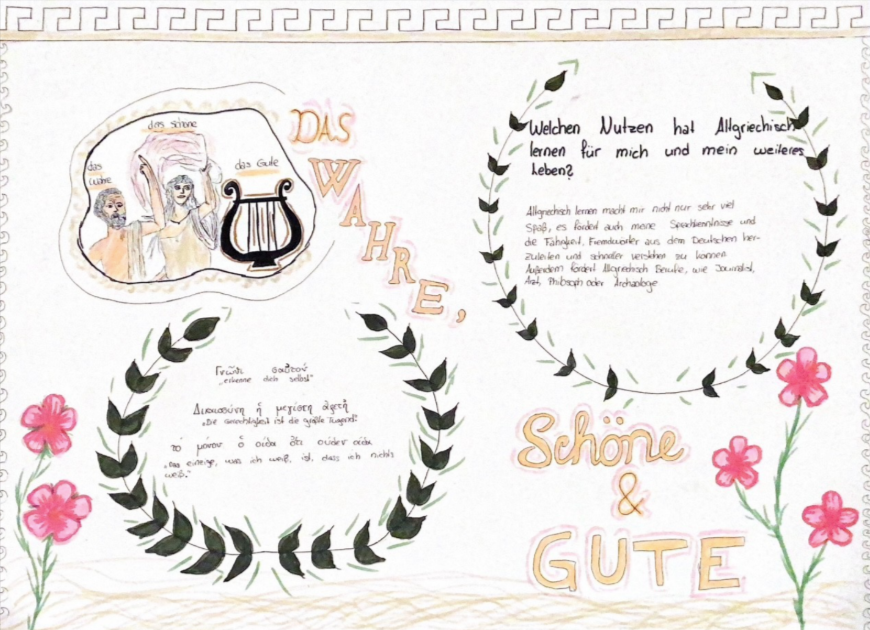 das schöne
das
Wahre
das Gute
DAS
WAHRE,
Welchen Nutzen hat Altgriechisch
lernen für mich und mein weiteres
Leben?
Altgriechisch lernen macht mir nicht nur sehr viel
Spaß, es fördert auch meine Sprachkenntnisse und
die Fähigkeit, Fremdwörter aus dem Deutschen her-
zuleiten und schneller verstehen zu können.
Außerdem fordert Altgriechisch Berufe, wie Journalist,
Arzt, Philosoph oder Archäologe
σαυτόν
„erkenne dich selbst"
Δικαιοσύνη ἡ μεγίστη ἀρετή
„Die Gerechtigkeit ist die größte Tugend"
τὸ μόνον ὃ οἶδα ὅτι οὐδεν οἶδα
„Das einzige, was ich weiß, ist, dass ich nichts
weiß."
Schöne
&
GUTE